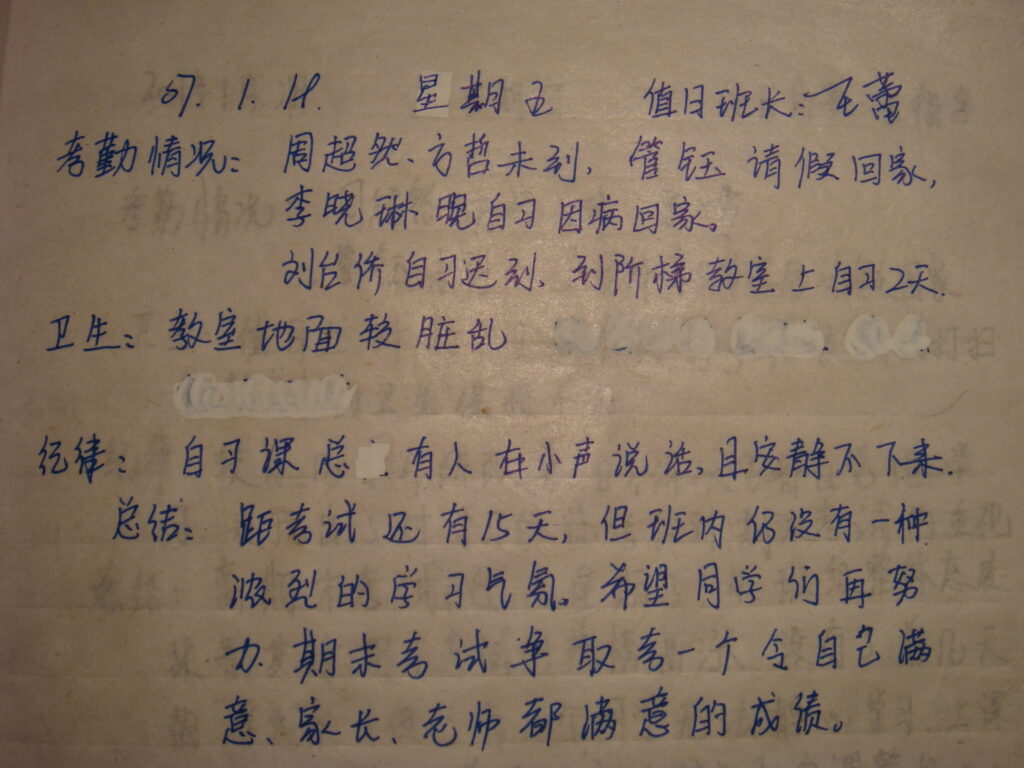 07.1.18. 星期五 值日班长:王蕾
考勤情况:周超然、方哲未到,管钰请假回家,
李晓琳晚自习因病回家。
刘台侨自习迟到、到阶梯教室上自习2天.
卫生:教室地面较脏乱
纪律:自习课总 有人在小声说话,且安静不下来.
总结:距考试还有15天,但班内仍没有一种
浓烈的学习气氛。希望同学们再努
力.期末考试争取考一个令自己满
意、家长、老师都满意的成绩。